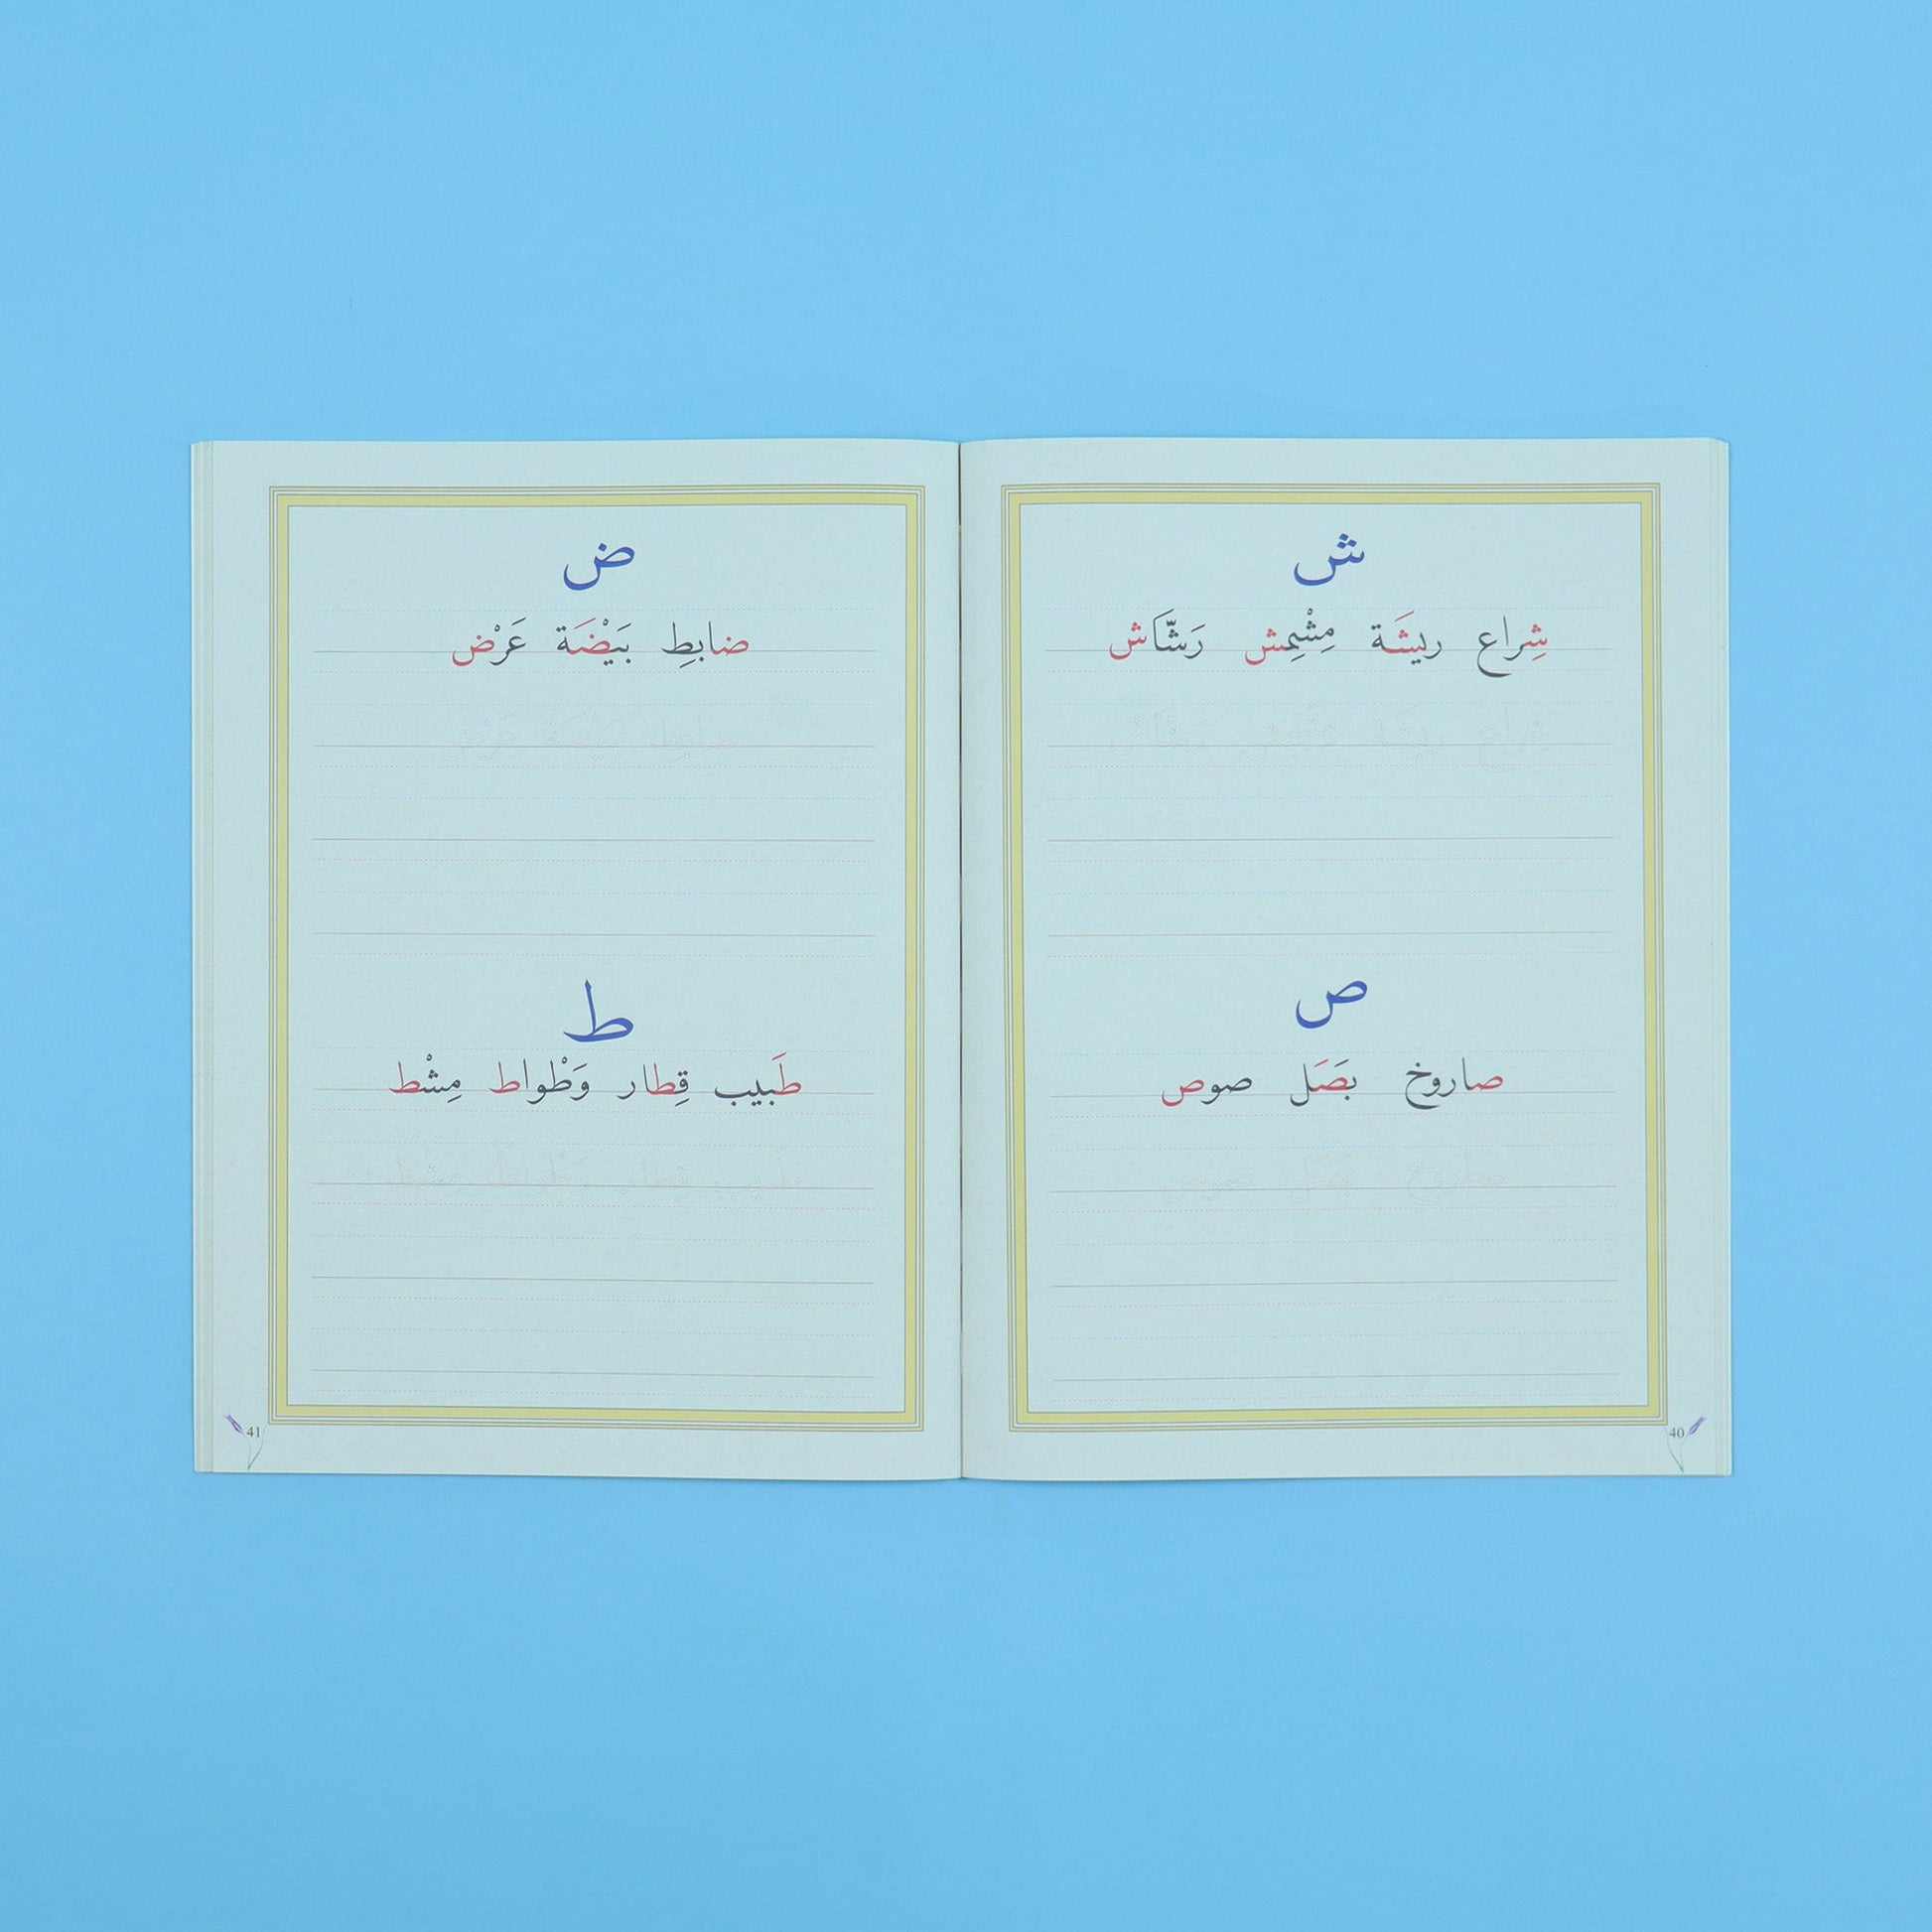 ش
شِراع ريشَة مِشْمِش رَشّاش
شِراع ريشَة مِشْمِش رَشّاش
ص
صاروخ بَصَل صوص
صاروخ بَصَل صوص
40
ض
ضابِط بَيْضَة عَرْض
ضابِط بَيْضَة عَرْض
ط
طَبيب قِطار وَطْواط مِشْط
طَبيب قِطار وَطْواط مِشْط
41